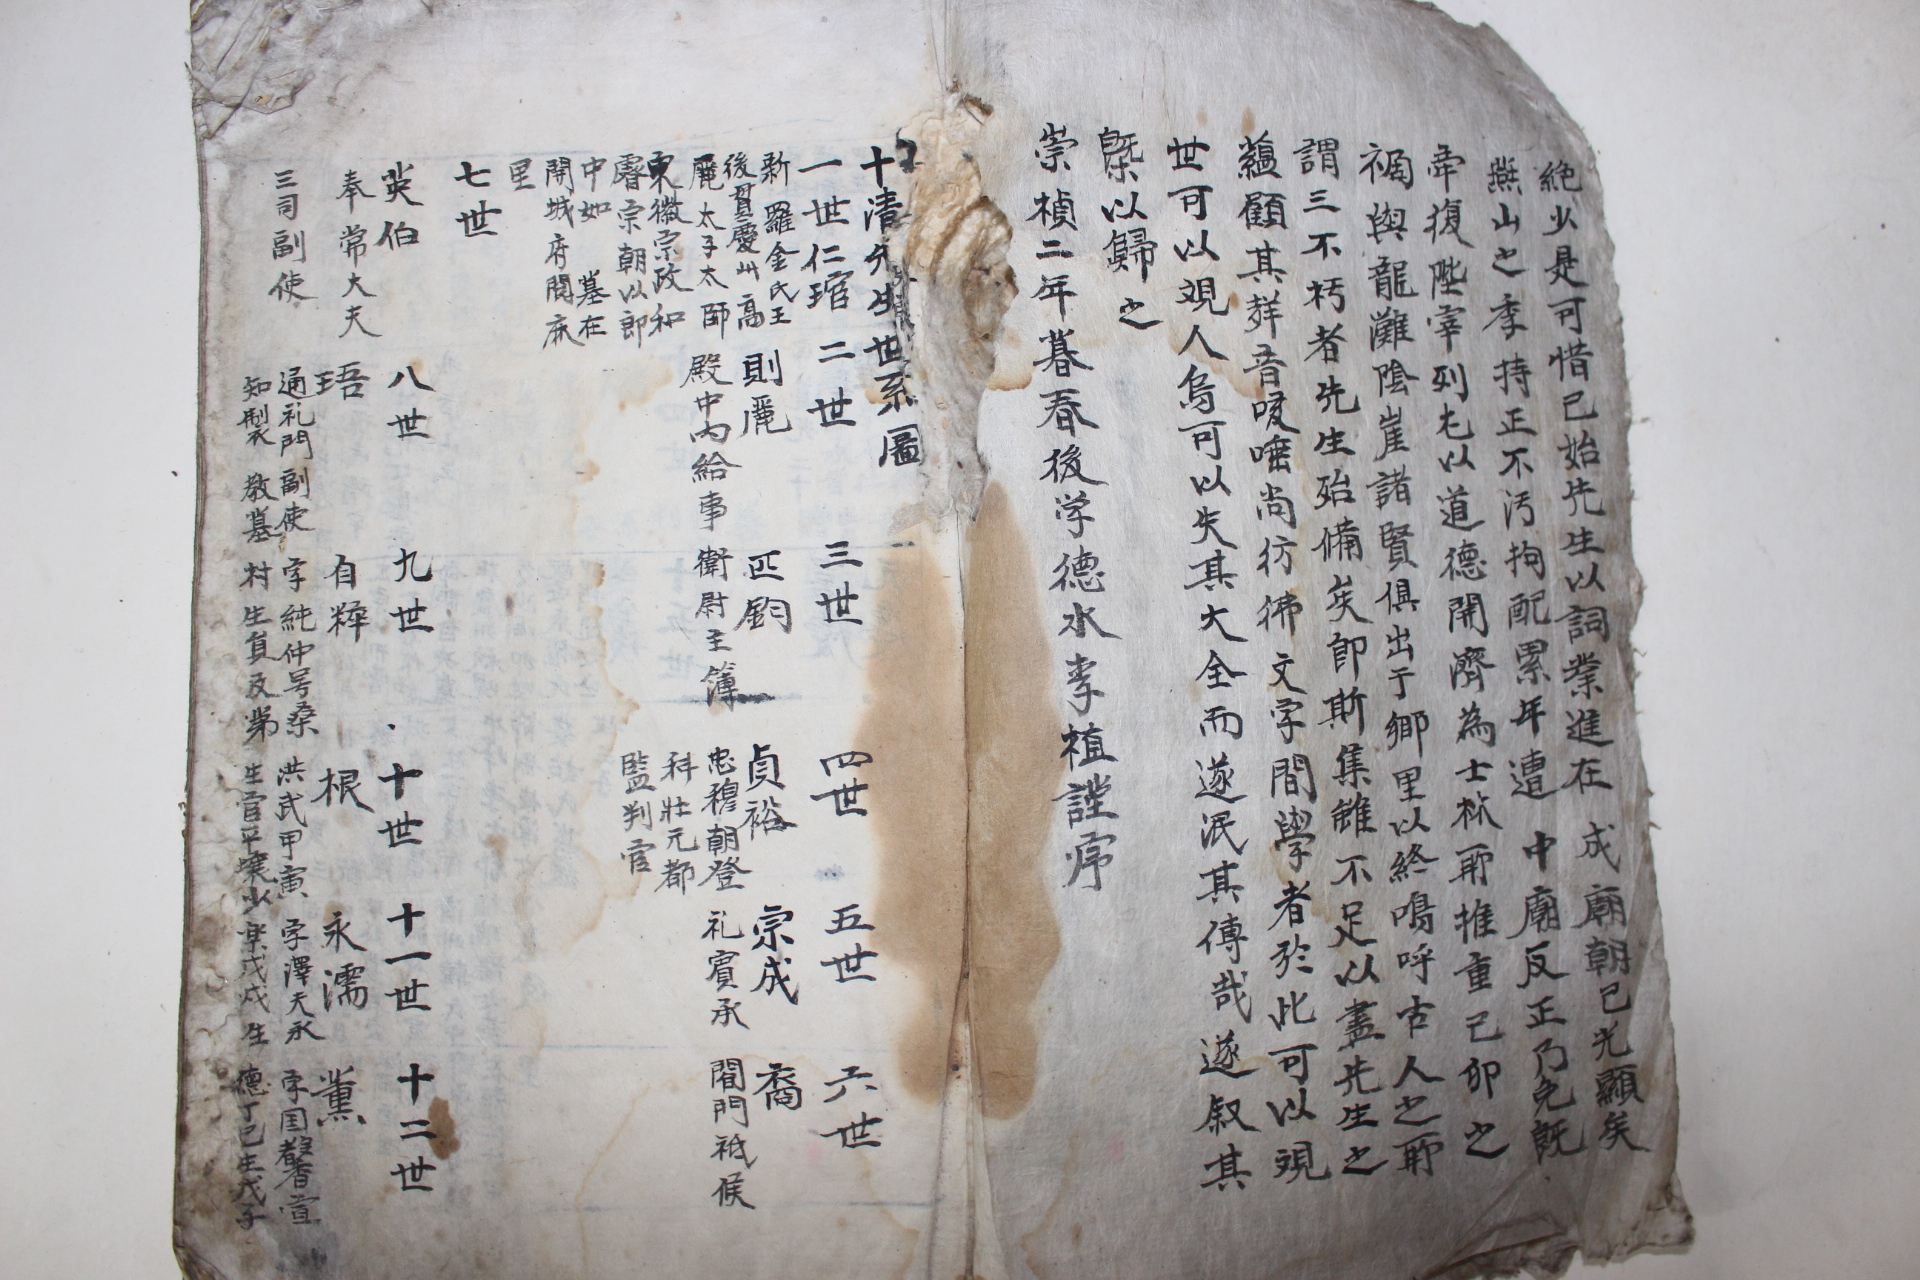 絶少是可惜已始先生以詞業進在 成廟朝已光顯矣
燕山之季持正不汚拘配累年遭 中廟反正乃免既
牽復陞宰列尤以道德開濟為士林所推重己卯之
禍與龍灘陰崖諸賢俱出于鄉里以終嗚呼古人之所
謂三不朽者先生殆備矣即斯集雖不足以盡先生之
蘊顧其咳唾尚彷彿文字間學者於此可以覌
世可以覌人烏可以失其大全而遂泯其傳哉遂叙其
槩以歸之
崇禎二年暮春後学德水李植謹序
十清先生世系圖
一世 二世 三世 四世 五世 六世
仁琯 則麗 匹鈞 貞裕 宗成 裔
新羅金氏王 殿中內給事 衛尉主簿 忠穆朝登 礼賓承 閤門祗候
後貫慶州高 科壯元都
麗太子太師 監判官
東徽宗政和
睿宗朝以郎
中如 墓在
開城府開庥
里
七世 八世 九世 十世 十一世 十二世
英伯 珸 自粹 根 永濡 薰
奉常大夫 通礼門副使 字純仲号桑 洪武甲寅 字澤夫永 字国馨
三司副使 知製敎墓 村生負及第 生官平壤少 戊戌生 德丁巳生戊子